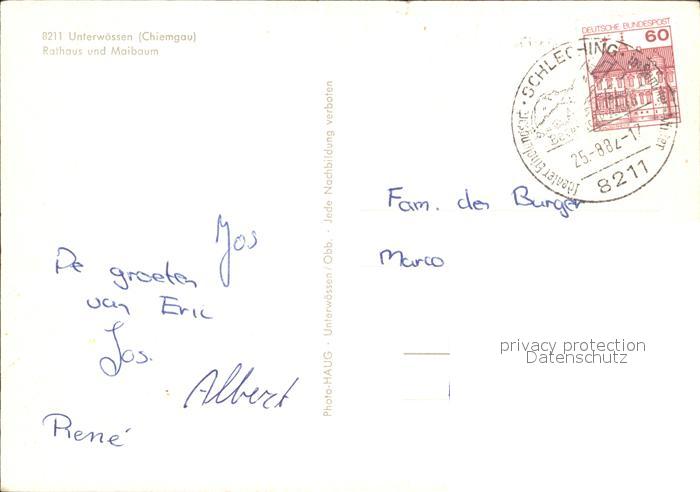 8211 Unterwössen (Chiemgau)
Rathaus und Maibaum
DEUTSCHE BUNDESPOST
60
SCHLECHING
25.-8.82.-17
8211
Photo-HAUG · Unterwössen/Obb. · Jede Nachbildung verboten
Jos
De groeten
van Eric
Jos.
Albert
René
Fam. den Burger
Marco
privacy protection
Datenschutz